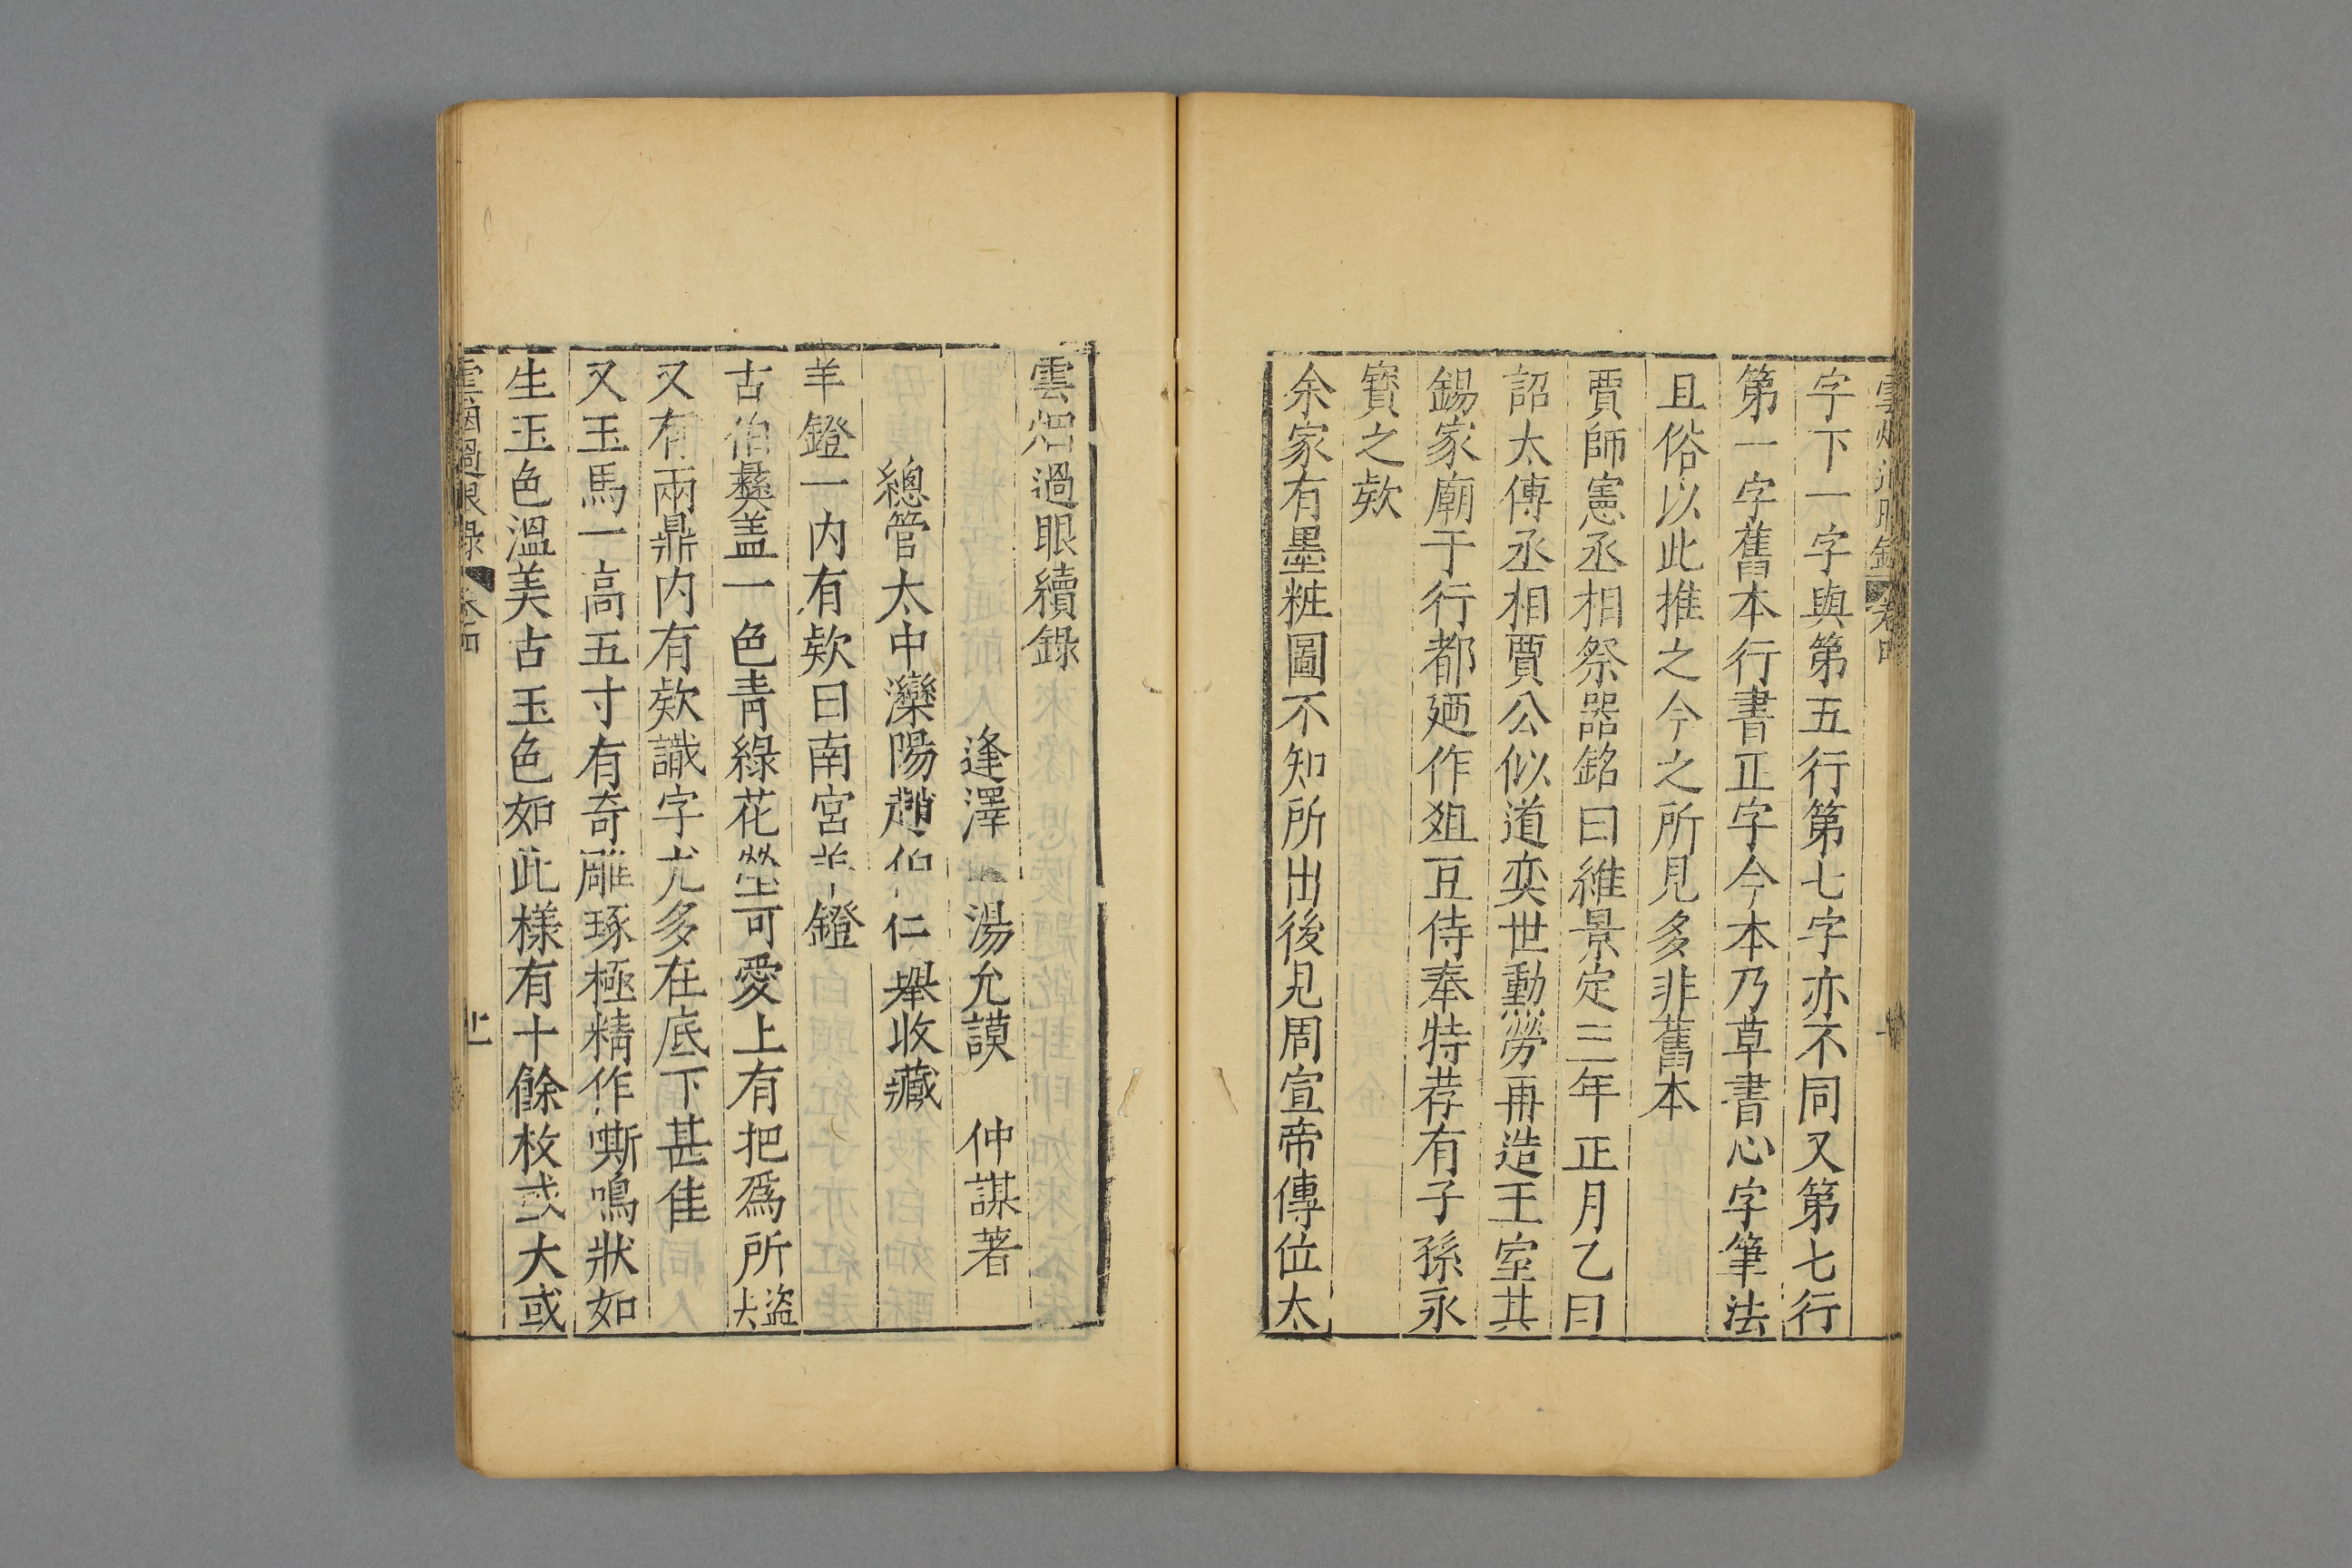 字下一字與第五行第七字亦不同又第七行
第一字舊本行書正字今本乃草書心字筆法
且俗以此推之今之所見多非舊本
賈師憲丞相祭器銘曰維景定三年正月乙日
詔太傅丞相賈公似道奕世勳勞再造王室其
錫家廟于行都廼作爼豆侍奉特荐有子孫永
寳之欵
余家有墨粧圖不知所出後見周宣帝傳位太
雲烟過眼續錄
逢澤 湯允謨 仲謀著
總管太中灤陽趙伯仁舉收藏
羊鐙一内有欵曰南宮羊鐙
古伯彝盖一色青綠花瑩可愛上有把爲所盗去
又有兩鼎内有欵識字尤多在底下甚佳
又玉馬一高五寸有奇雕琢極精作嘶鳴狀如
生玉色溫美古玉色如此樣有十餘枚或大或
雲烟過眼錄 卷四